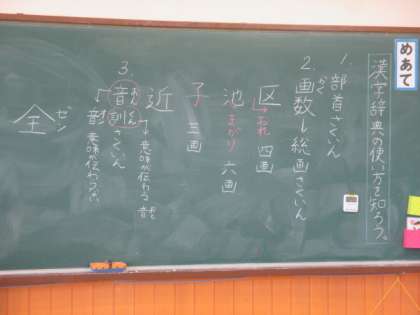 めあて
漢字辞典の使い方を知ろう。
1. 部首さくいん
2. 画数→総画さくいん
かく
区 四画
→おれ
池 六画
まがり
子 三画
近
3. 音訓さくいん
おん
くん
→意味が伝わる
意味が伝わらない
全
ゼン